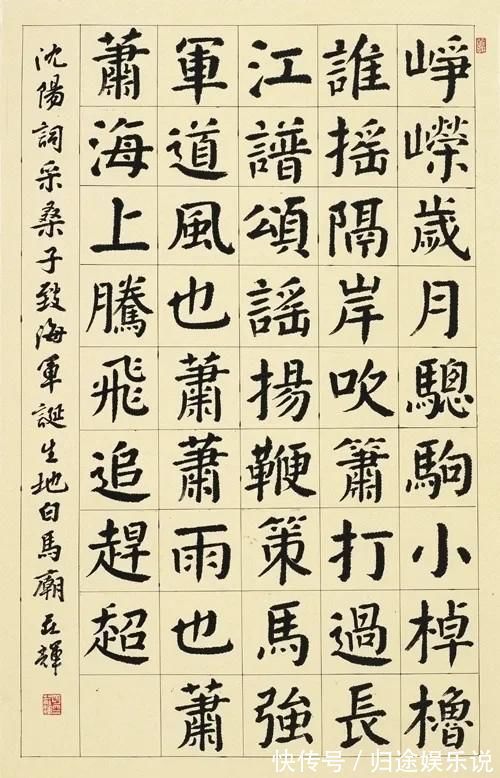 崢嶸歲月驄駒小棹櫓
誰搖隔岸吹簫打過長
江譜頌謡揚鞭策馬強
軍道風也蕭蕭雨也蕭
蕭海上騰飛追趕超
沈陽詞采桑子致海軍誕生地白馬廟 亞輝
快传号/归途娱乐说